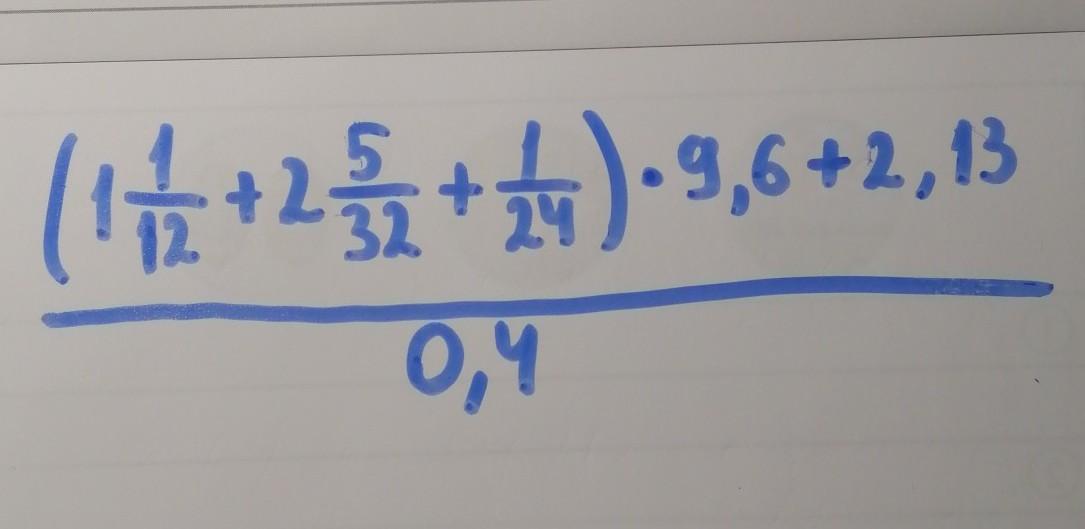 (1 1/12 + 2 5/32 + 1/24) · 9,6 + 2,13
0,4